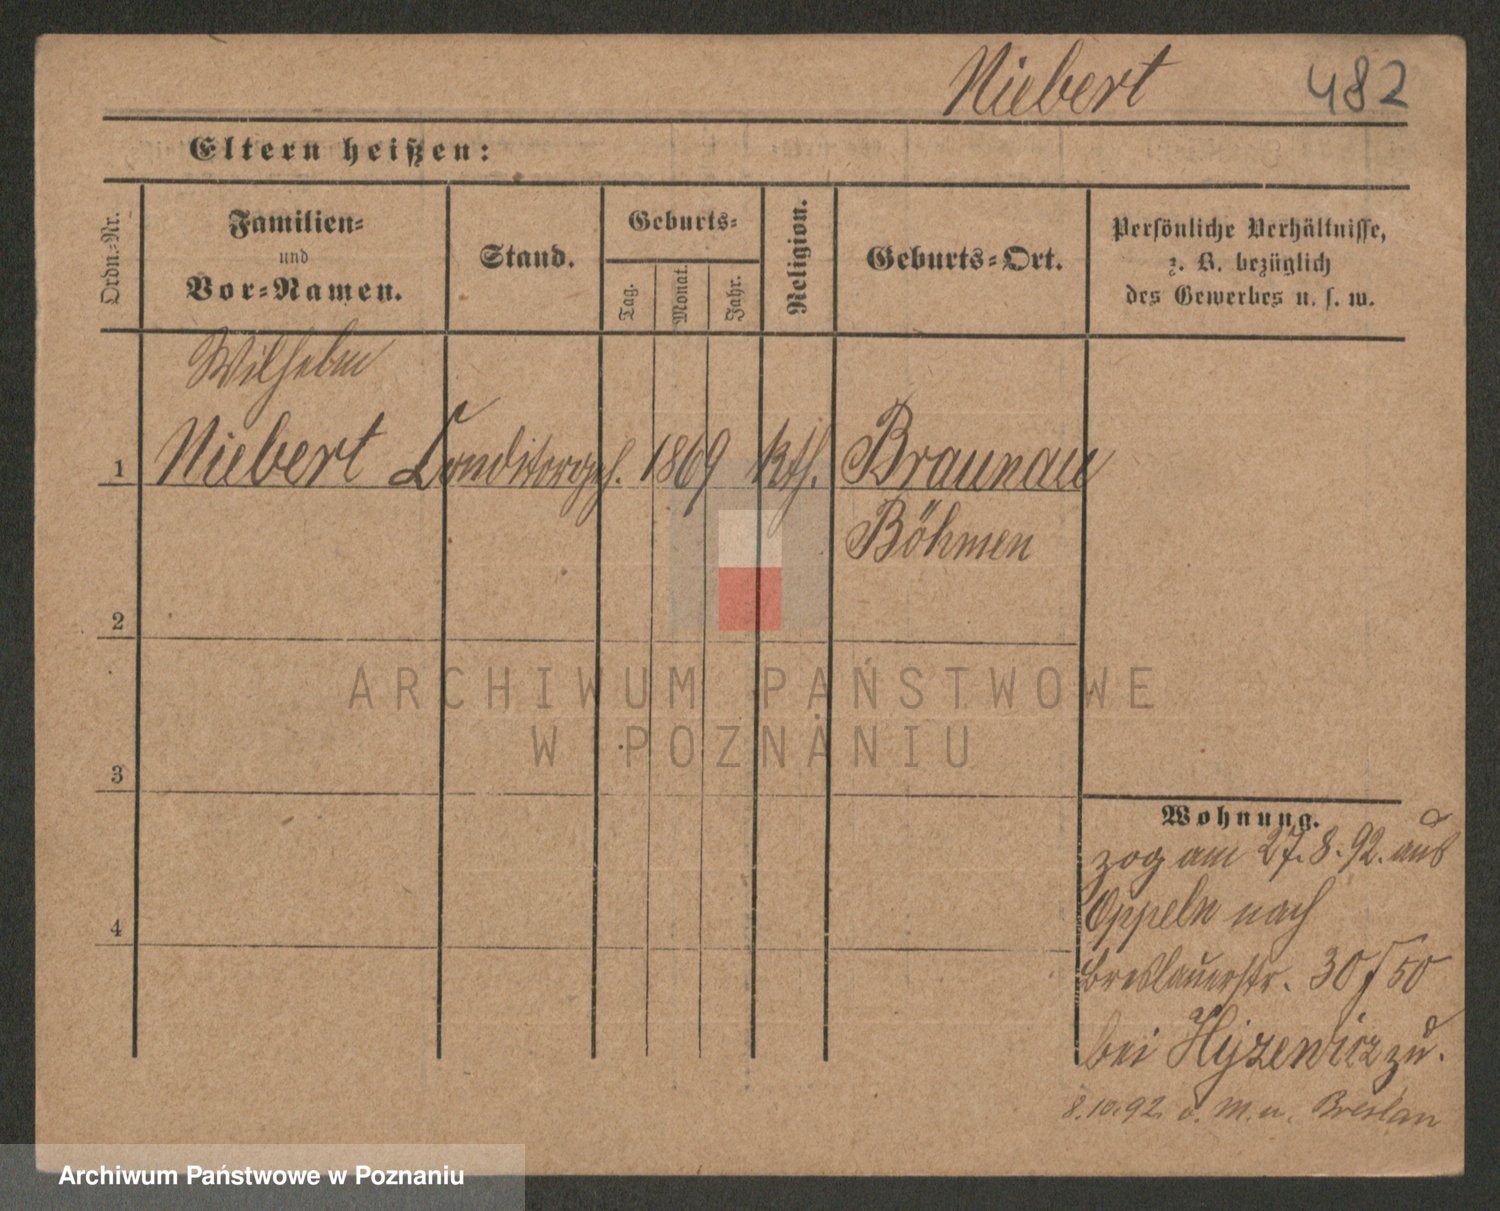 Niebert 482
Eltern heißen:
Ordn.-Nr.
Familien-
und
Vor-Namen.
Stand.
Geburts-
Tag.
Monat.
Jahr.
Religion.
Geburts-Ort.
Persönliche Verhältnisse,
z. B. bezüglich
des Gewerbes u. s. w.
Wilhelm
1 Niebert Conditorgh. 1869 kth. Braunau
Böhmen
2
3
4
Wohnung.
zog am 27.8.92. aus
Oppeln nach
Breslauerstr. 30/50
bei Hyzewicz zu.
8.10.92. o. M. n. Breslau
ARCHIWUM PAŃSTWOWE
W POZNANIU
Archiwum Państwowe w Poznaniu